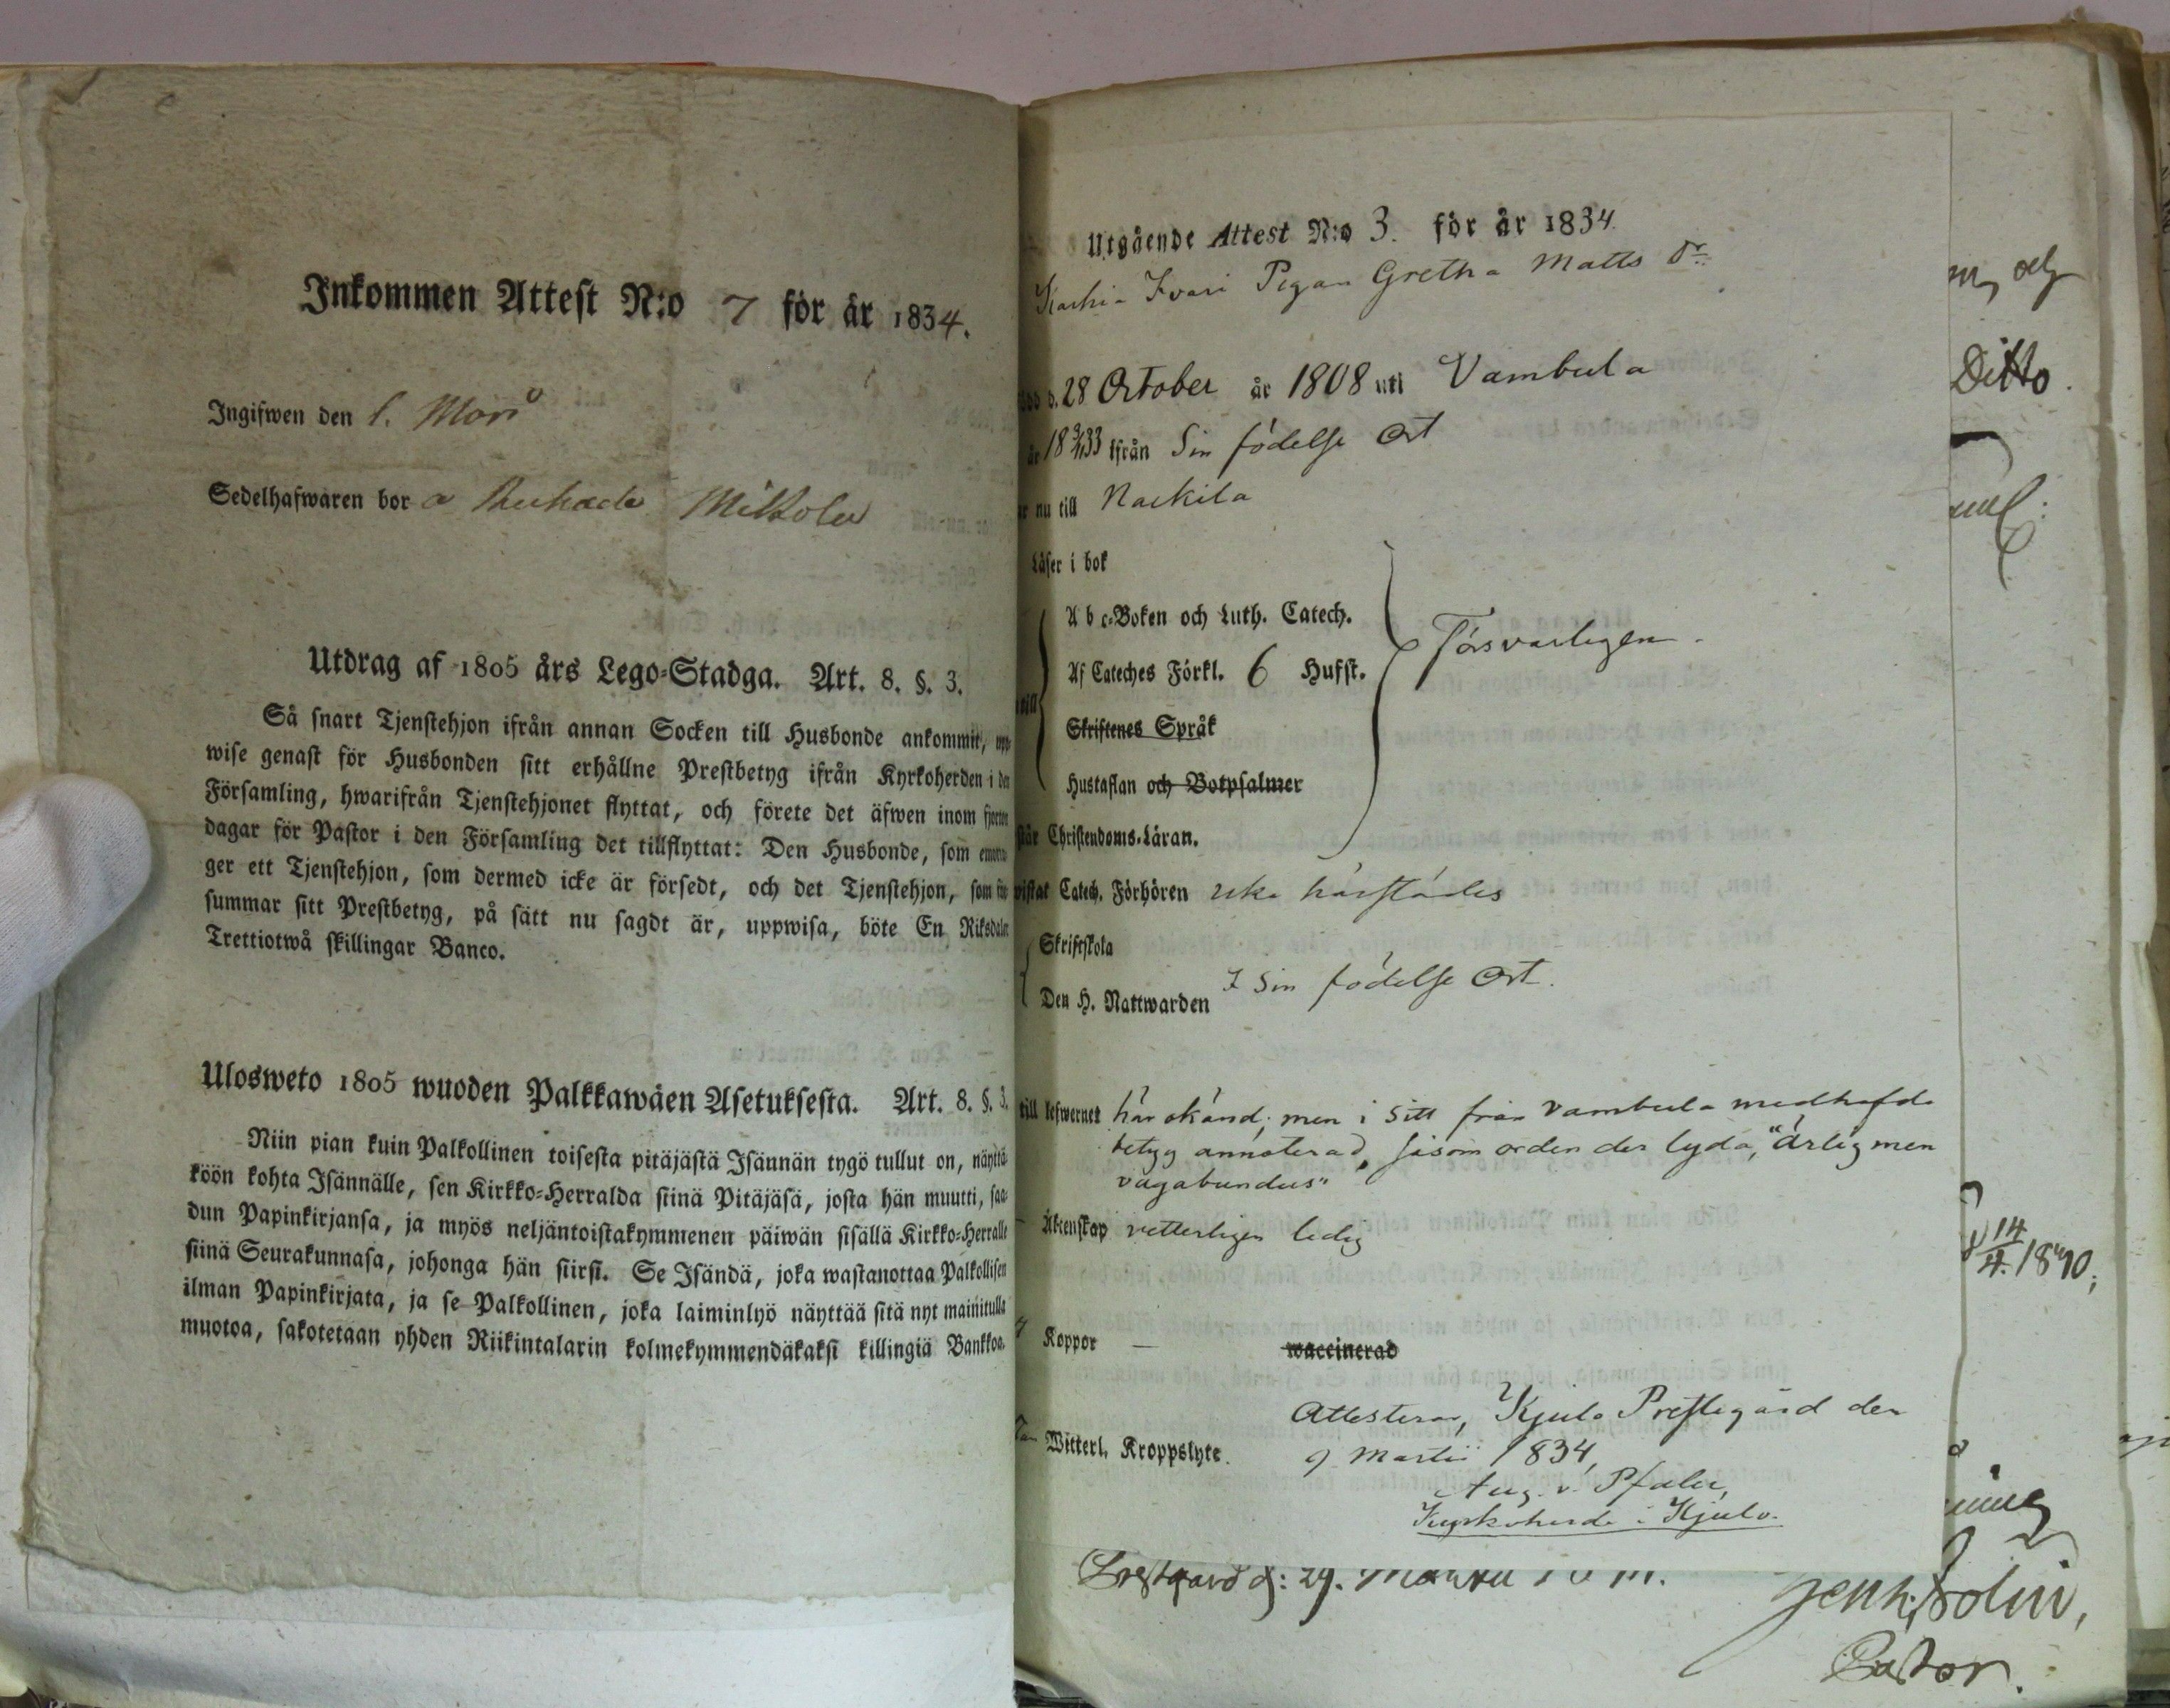 Inkommen Attest N:o 7 för år 1834.
Ingifwen den
Sedelhafwaren bor
Utdrag af 1805 års Lego-Stadga. Art. 8. §. 3.
Så snart Tjenstehjon ifrån annan Socken till Husbonde ankommit, upp-
wise genast för Husbonden sitt erhållne Prestbetyg ifrån Kyrkoherden i den
Församling, hwarifrån Tjenstehjonet flyttat, och förete det äfwen inom fjorton
dagar för Pastor i den Församling det tillflyttat: Den Husbonde, som emotta-
ger ett Tjenstehjon, som dermed icke är försedt, och det Tjenstehjon, som för-
summar sitt Prestbetyg, på sätt nu sagdt är, uppwisa, böte En Riksdaler
Trettiotwå skillingar Banco.
Ulosweto 1805 wuoden Palkkawäen Asetuksesta. Art. 8. §. 3.
Niin pian kuin Palkollinen toisesta pitäjästä Isännän tygö tullut on, näyttä-
köön kohta Isännälle, sen Kirkko-Herralda siinä Pitäjäsä, josta hän muutti, saa-
dun Papinkirjansa, ja myös neljäntoistakymmenen päiwän sisällä Kirkko-Herralle
siinä Seurakunnasa, johonga hän siirsi. Se Isändä, joka wastanottaa Palkollisen
ilman Papinkirjata, ja se Palkollinen, joka laiminlyö näyttää sitä nyt mainitulla
muotoa, sakotetaan yhden Riikintalarin kolmekymmendäkaksi killingiä Bankkoa.
Utgående Attest N:o 3. för år 1834.
Pigan Gretha Matts Dr
28 October år 1808 uti Vambula
ifrån Sin födelse Ort
nu till Nackila
Läser i bok
A b c-Boken och Luth. Catech.
Af Cateches Förkl. 6 Hufst.
Försvarligen.
Skriftenes Språk
Hustaflan och Botpsalmer
Christendoms-Läran.
Catech. Förhören icke härstädes
Skriftskola
Den H. Nattwarden I Sin födelse Ort.
till lefwernet här okänd; men i sitt från Vambula medhafde
betyg annoterad, såsom orden der lyda, "ärlig men
vagabundus"
Äktenskap vetterligen ledig
Koppor — waccinerad
Witterl. Kroppslyte.
Attesterar, Kjulo Prestegård den
9 Martii 1834,
Aug. v. Pfaler,
Kyrkoherde i Kjulo.
Ditto.
14/4. 1840;
Prestgård d: 29.
Pastor.